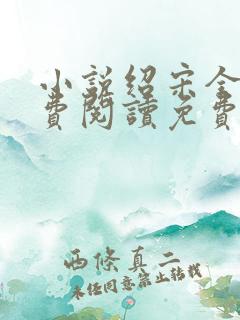 小說紹宋全
費閱讀免費
西條真二
未經同意禁止轉載